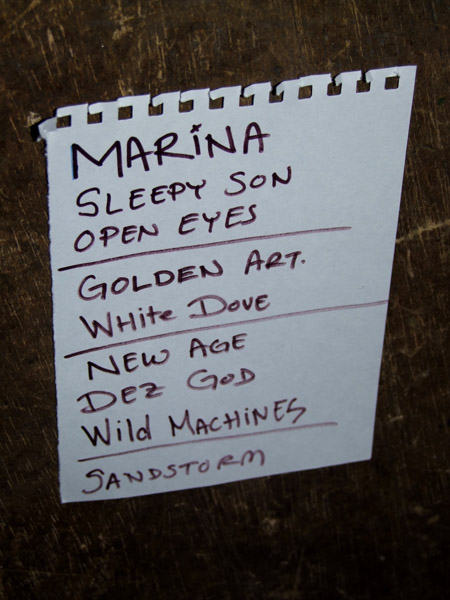 MARiNA
SLEEPY SON
OPEN EYES
GOLDEN ART.
WHite DOVE
NEW AGE
DEZ GOD
Wild MACHiNES
SANDSTORM